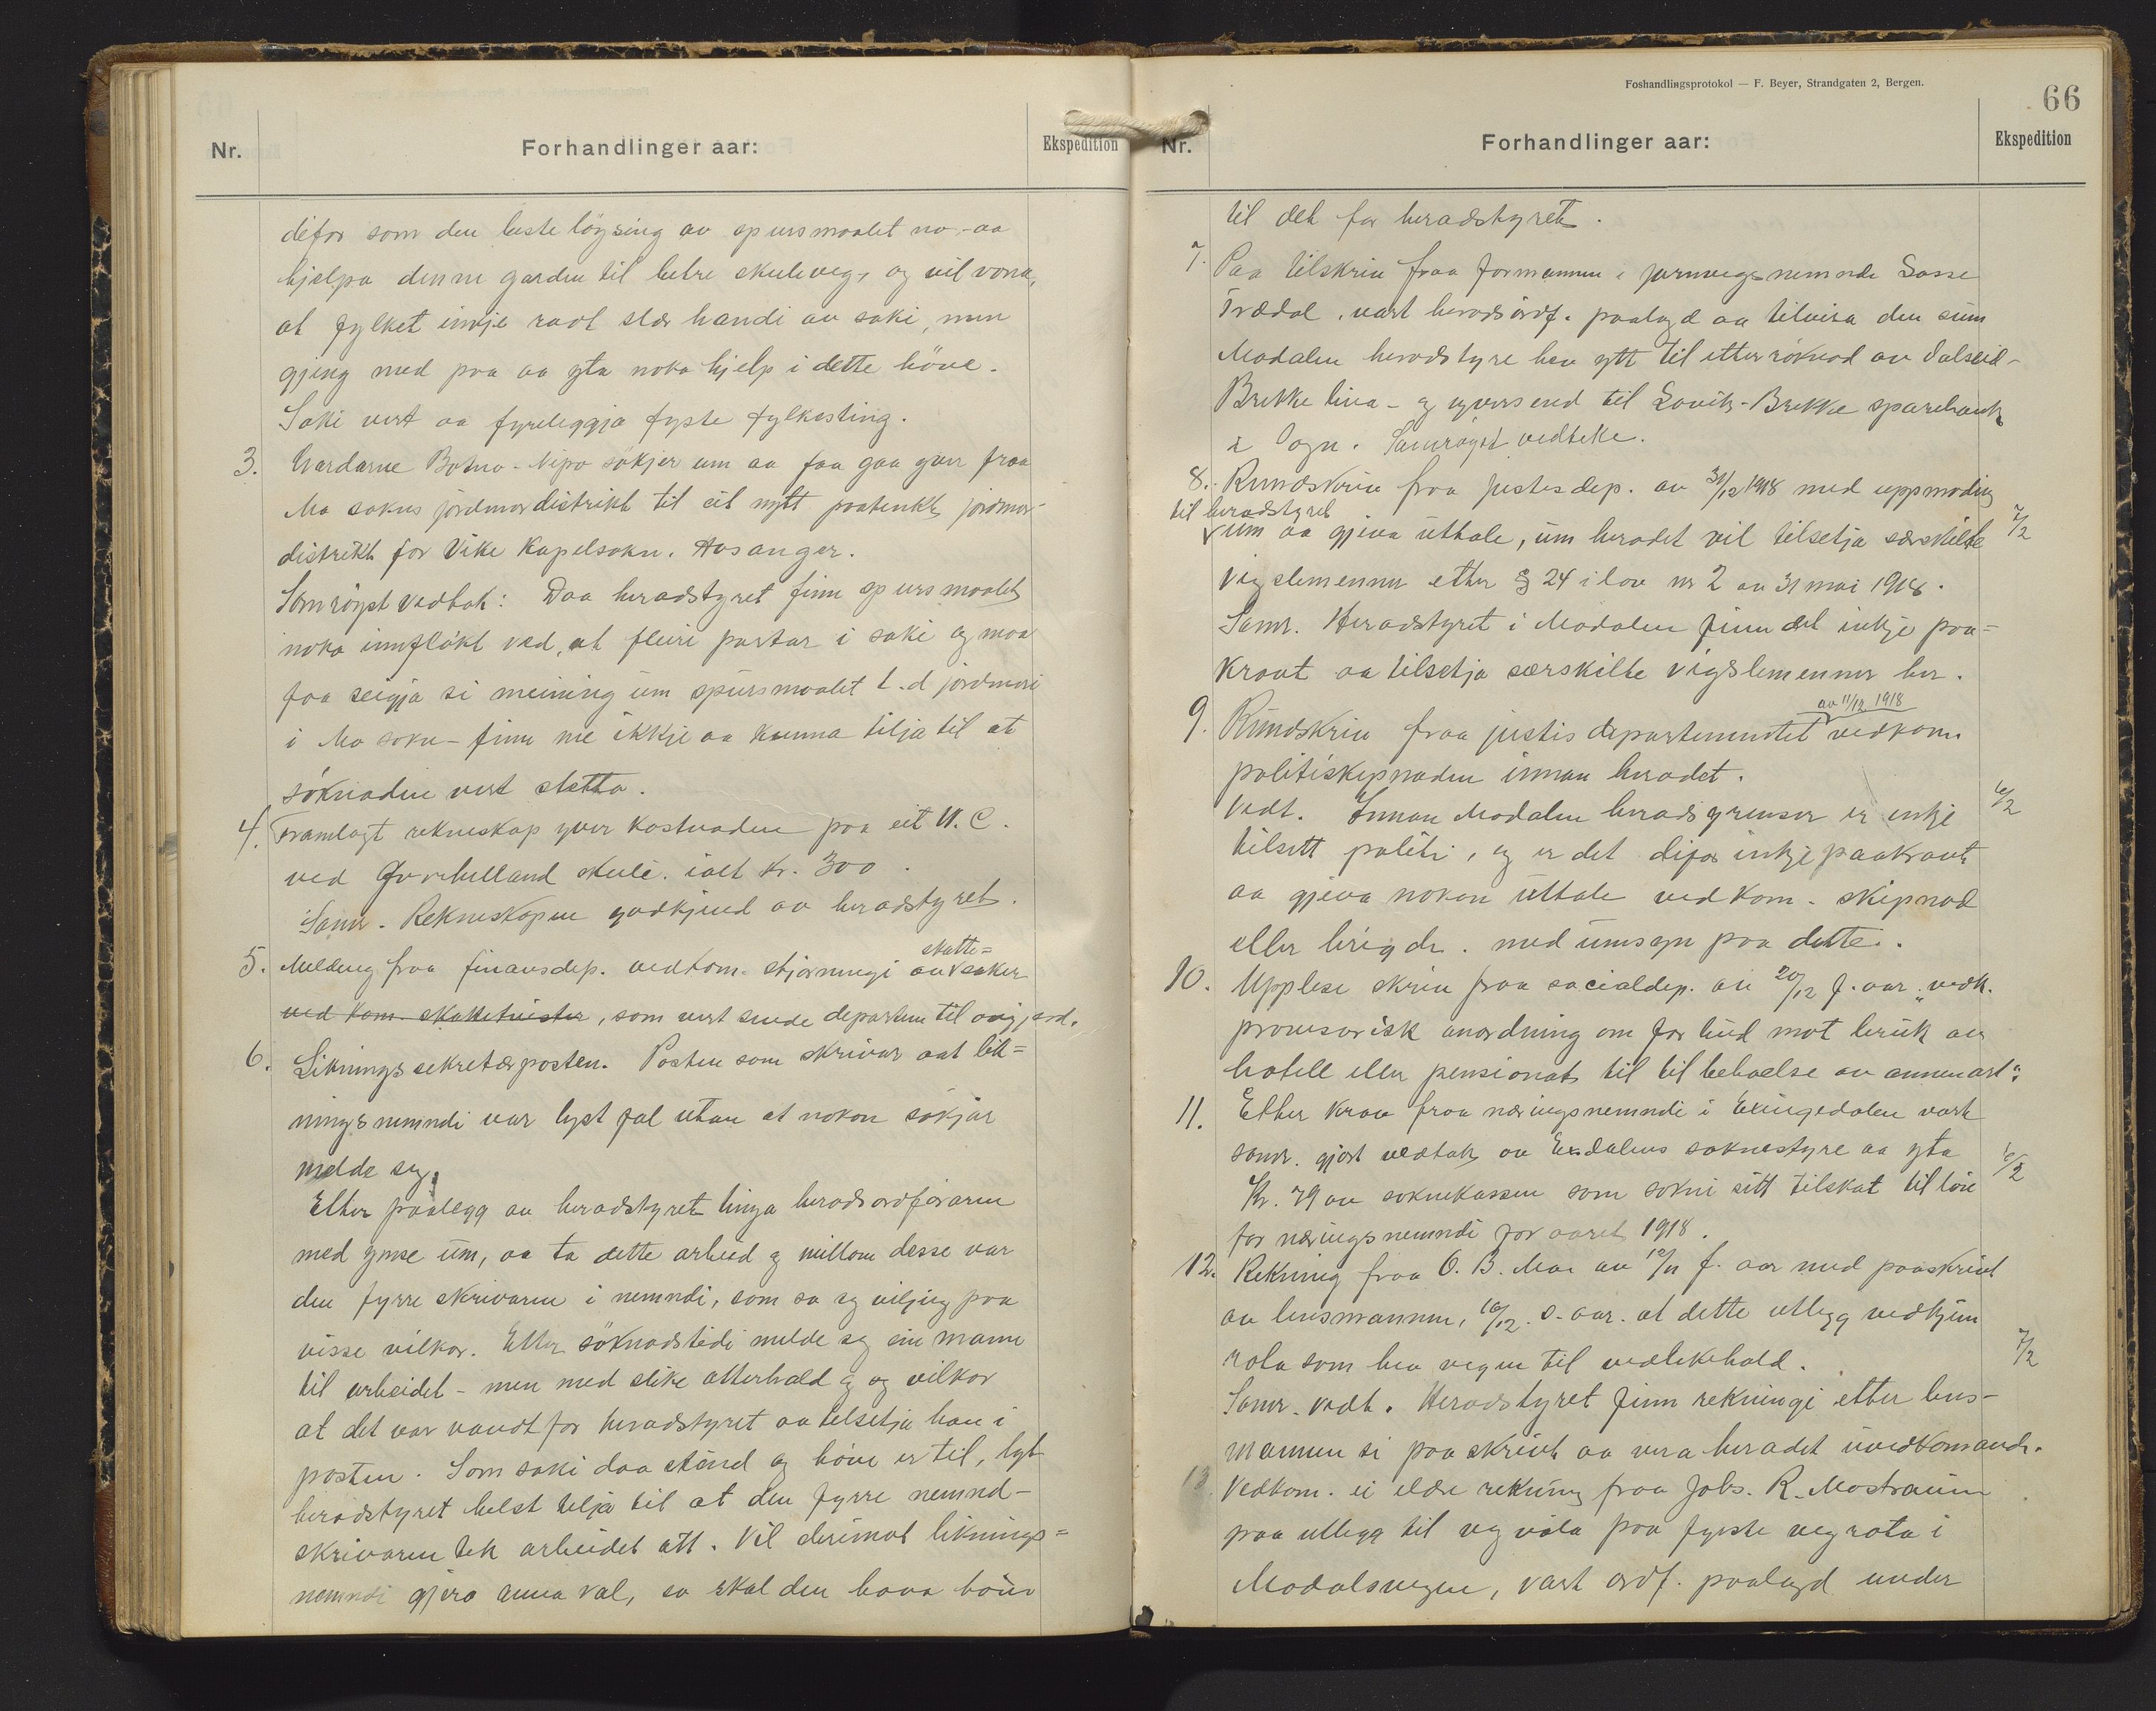 Nr.
Forhandlinger aar:
Ekspedition
difor som den beste löysing av spursmaalet no, aa
hjelpa denne garden til betre skuleveg, og vil vona,
at fylket inkje radt slær handi av saki, men
gjeng med paa aa yta noka hjelp i dette höve.
Saki vert aa fyreleggja fyste fylkesting.
3. Gardarne Botna-Nipo sökjer um aa faa gaa yver fraa
Mo sokns jordmordistrikt til eit nytt paatenkt jordmor-
distrikt for Vike Kapelsokn. Hosanger.
Samröyst vedtak: Daa heradstyret finn spursmaalet
noko innflökt ved, at fleire partar i saki og maa
faa seigja si meining um spursmaalet t.d jordmori
i Mo sokn - finn me ikkje aa kunna tilja til at
söknaden vert stetta.
4. Framlagt rekneskap yver kostnaden paa eit W.C.
ved Govehelland skule. ialt kr. 300.
Samr. Rekneskapen godkjend av heradstyret.
5. Melding fraa finansdep. vedkom. stjorningi av skatte=
saker
ved kom. skattetvister, som vert sende departem til avgjerd.
6. Likningssekretærposten. Posten som skrivar aat lik=
ningsnemndi var lyst fal utan at nokon sökjar
melde seg.
Etter paalegg av heradstyret tinga heradsordföraren
med ymse um, aa ta dette arbeid og millom desse var
den fyrre skrivaren i nemndi, som sa seg viljug paa
visse vilkor. Etter söknadstidi melde seg ein mann
til arbeidet - men med slike atterhald og og vilkor
at det var vandt for heradstyret aa tilsetja han i
posten. Som saki daa stend og höve er til, lyt
heradstyret helst tilja til at den fyrre nemnd-
skrivaren tek arbeidet att. Vil derimot liknings=
nemndi gjera anna val, so skal den hava höve
Foshandlingsprotokol — F. Beyer, Strandgaten 2, Bergen.
66
Nr.
Forhandlinger aar:
Ekspedition
til det for heradstyret.
7. Paa tilskriv fraa formannen i jarnvegsnemnde Lasse
Trædal, vart heradsordf. paalagd aa tilvisa den sum
Modalen heradstyre hev ytt til etterröknad av Dalseid-
Brekke lina - og yversend til Lavik-Brekke sparebank
i Sogn. Samröyst vedteke.
8. Rundskriv fraa justisdep. av 31/12 1918 med uppmoding
til heradstyret
um aa gjeva uttale, um heradet vil tilsetja særskilte 7/2
vigslemenner etter § 24 i lov nr 2 av 31 mai 1918.
Samr. Heradstyret i Modalen finn det inkje paa=
kravt aa tilsetja særskilte vigslemenner her.
av 11/12 1918
9. Rundskriv fraa justisdepartementet vedkom.
politiskipnaden innan heradet.
Vedt. Innan Modalen herads grenser er inkje 6/2
tilsett politi, og er det difor inkje paakravt
aa gjeva nokon uttale vedkom. skipnad
eller brigde. med umsyn paa dette.
10. Upplese skriv fraa socialdep. av 20/12 f. aar. vedk.
"provisorisk anordning om forbud mot bruk av
hotell eller pensionat til til behoelse av annen art".
11. Etter krav fraa næringsnemndi i Exingedalen vart
samr. gjort vedtak av Exdalens soknestyre aa yta 6/2
Kr. 79 av soknekassen som sokni sitt tilskot til löi
for næringsnemndi for aaret 1918.
12. Rekning fraa O. B. Moe av 10/11 f. aar med paaskrivt
av lensmannen, 10/12. s. aar. at dette utlegg vedkjem
rota som hev vegen til vedlikehald. 7/2
Samr. vedt. Heradstyret finn rekningi etter lens-
mannen si paaskrivt aa vera heradet uvedkomande.
13. Vedkom. ei eldre rekning fraa Johs. R. Mostraum
paa utlegg til veg vola paa fyrste vegrota i
Modalsvegen, vart ordf. paalagd under